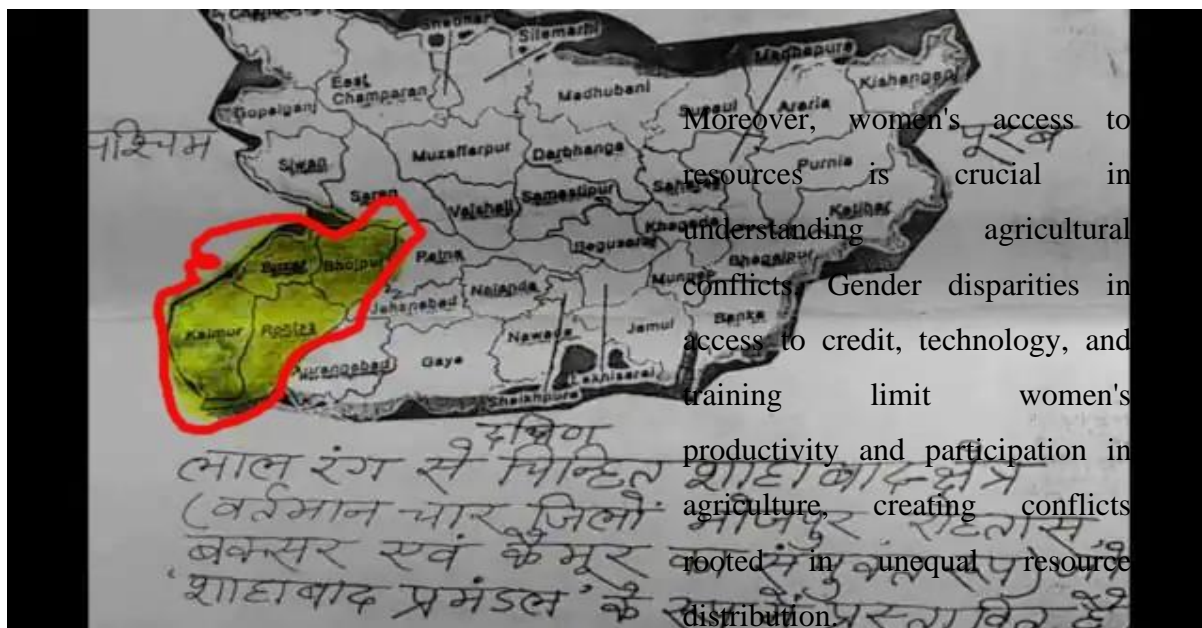 Sheohar
Sitamarhi
Madhepura
East
Champaran
Gopalganj
Madhubani
Supaul
Araria
Kishanganj
पश्चिम
पूरब
Siwan
Muzaffarpur
Darbhanga
Purnia
Saran
Vaishali
Samastipur
Saharsa
Katihar
Khagaria
Begusarai
Buxar
Bhojpur
Patna
Munger
Bhagalpur
Nalanda
Jehanabad
Kaimur
Rohtas
Nawada
Jamui
Banka
Aurangabad
Gaya
Lakhisarai
Sheikhpura
दक्षिण
लाल रंग से चिन्हित शाहाबाद क्षेत्र
(वर्तमान चार जिलों भोजपुर रोहतास,
बक्सर एवं कैमूर का संयुक्त रूप)
'शाहाबाद प्रमंडल' के प्रस्तावित है
Moreover, women's access to
resources is crucial in
understanding agricultural
conflicts. Gender disparities in
access to credit, technology, and
training limit women's
productivity and participation in
agriculture, creating conflicts
rooted in unequal resource
distribution.